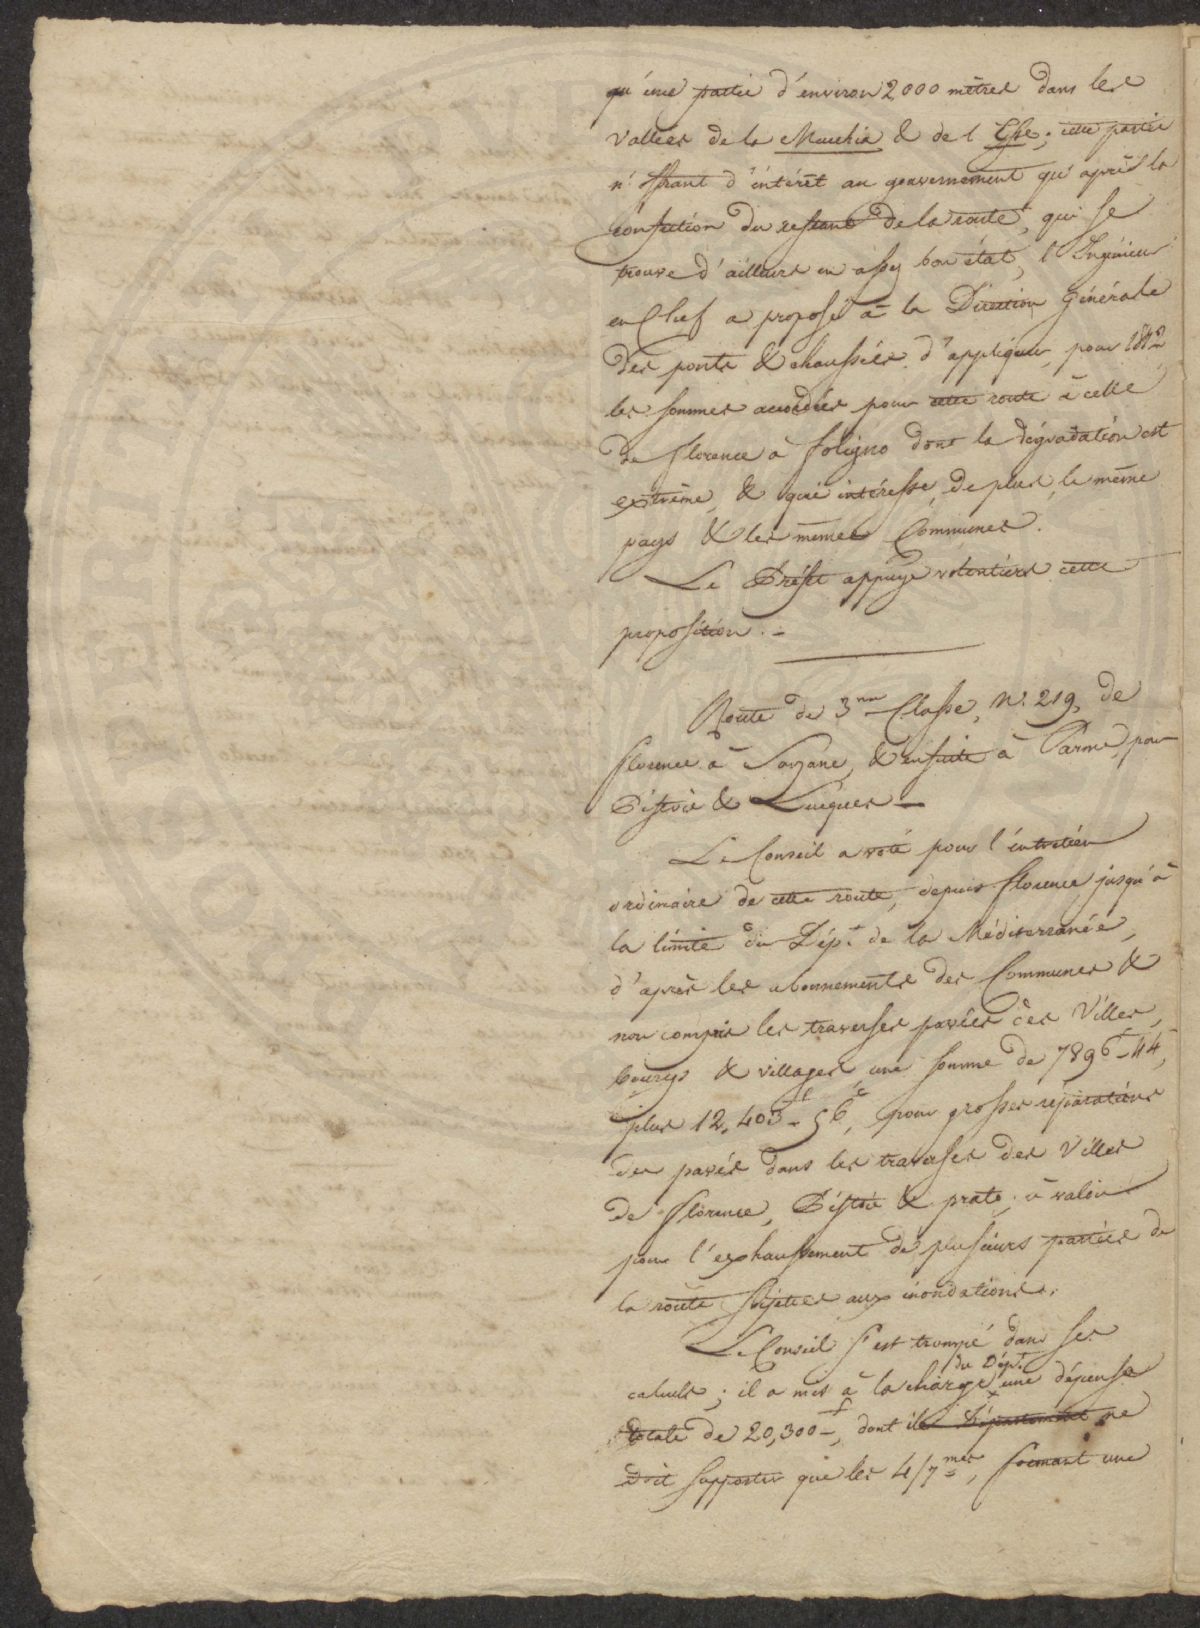 qu'une partie d'environ 2000 mètres dans les
vallées de la Marchia & de l'; cette partie
n'offrant d'intérêt au gouvernement qu'après la
confection du restant de la route, qui se
trouve d'ailleurs en assez bon état, l'Ingénieur
en Chef a proposé à la Direction Générale
des ponts & chaussées d'appliquer, pour 1812,
les sommes accordées pour cette route à celle
de florence à foligno dont la dégradation est
extrême, & qui intéresse, de plus, le même
pays & les mêmes Communes.
Le Préfet appuye volontiers cette
proposition. -
Route de 3me Classe, N.° 219, de
florence à Sarzane, & ensuite à Parme, par
Pistoie & Lucques -
Le Conseil a voté pour l'entretien
ordinaire de cette route, depuis florence jusqu'à
la limite du Dép.t de la Méditerranée,
d'après les abonnements des Communes &
non compris les traverses pavées des Villes,
bourgs & villages une somme de 7896f-44,
plus 12,403f-56c, pour grosses réparations
des pavés dans les traverses des Villes
de florence, Pistoie & prato, à valoir
pour l'exhaussement de plusieurs parties de
la route sujettes aux inondations.
Le Conseil s'est trompé dans ses
calculs; il a mis à la charge du Dép.t une dépense
totale de 20,300f-, dont il Département ne
doit supporter que les 4/7mes, formant une